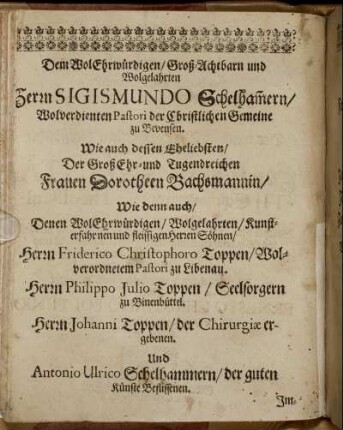 Dem WolEhrwürdigen/ Groß-Achtbarn und
Wolgelahrten
Herrn SIGISMUNDO Schelham̄ern/
Wolverdienten Pastori der Christlichen Gemeine
zu Bevensen.
Wie auch dessen Eheliebsten/
Der GroßEhr- und Tugendreichen
Frauen Dorotheen Bachsmannin/
Wie denn auch/
Denen WolEhrwürdigen/ Wolgelahrten/ Kunst-
erfahrnen und fleissigen Herren Söhnen/
Herrn Friderico Christophoro Toppen/ Wol-
verordnetem Pastori zu Libenau.
Herrn Philippo Julio Toppen/ Seelsorgern
zu Binenbüttel.
Herrn Johanni Toppen/ der Chirurgiæ er-
gebenen.
Und
Antonio Ulrico Schelhammern/ der guten
Künste Beflissenen.
Im-